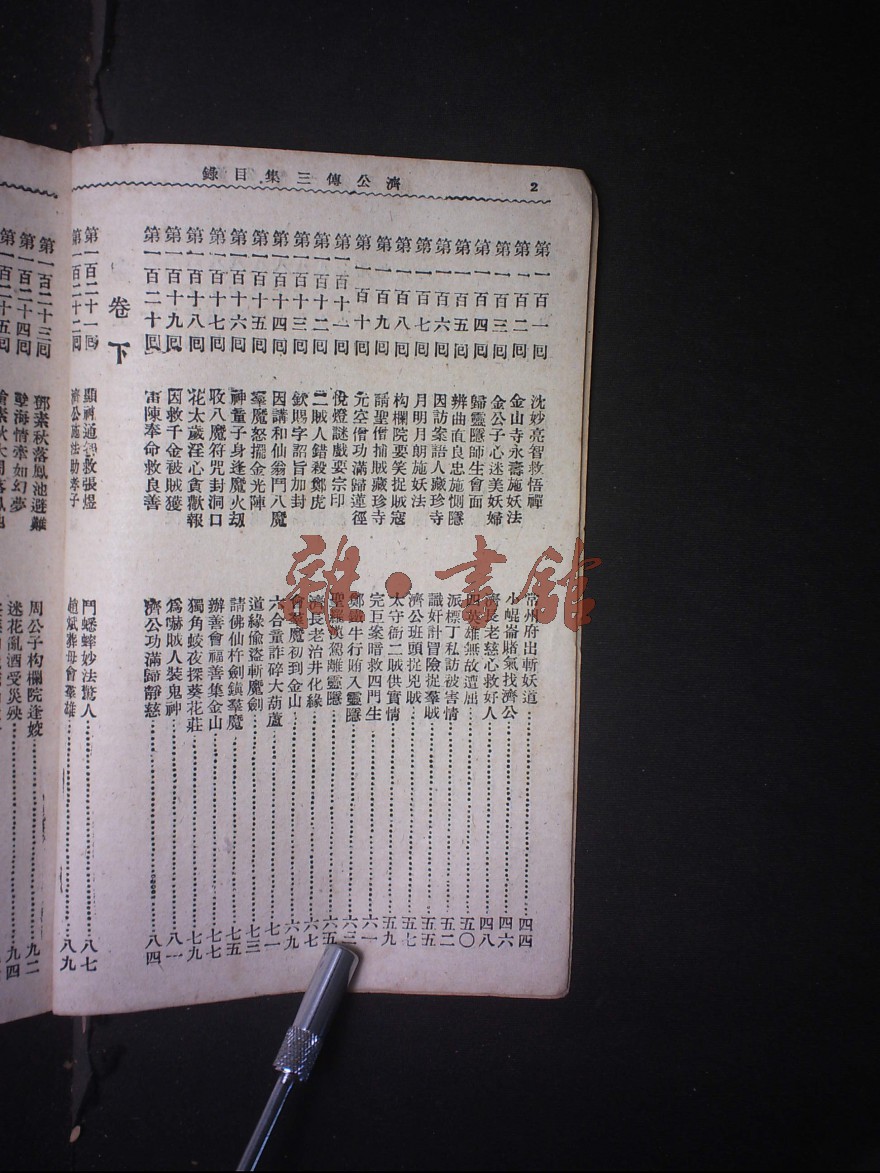 濟公傳三集目錄
2
第一百一回 沈妙亮智救悟禪 常州府出斬妖道 四四
第一百二回 金山寺永壽施妖法 小崐崙賭氣找濟公 四六
第一百三回 金公子心迷美妖婦 濟長老慈心救好人 四八
第一百四回 歸靈隱師生會面 四英雄無故遭屈 五〇
第一百五回 辨曲直良忠施惻隱 派標丁私訪被害情 五二
第一百六回 因訪案語人藏珍寺 識奸計冒險捉羣賊 五五
第一百七回 月明月朗施妖法 濟公班頭捉兇賊 五七
第一百八回 构欄院耍笑捉賊寇 太守衙二賊供實情 五九
第一百九回 請聖僧捕賊藏珍寺 完巨案暗救四門生 六一
第一百十回 元空僧功滿歸蓮徑 鄭鐵牛行賄入靈隱 六三
第一百十一回 悅燈謎戲耍宗印 聖羅漢駕離靈隱 六五
第一百十二回 二賊人錯殺鄭虎 濟長老治井化緣 六七
第一百十三回 欽賜字詔旨加封 會羣魔初到金山 六九
第一百十四回 因講和仙翁鬥八魔 六合童詐碎大葫蘆 七一
第一百十五回 羣魔怒擺金光陣 道緣偷盜斬魔劍 七三
第一百十六回 神童子身逢魔火劫 請佛仙杵劍鎮羣魔 七五
第一百十七回 收八魔符咒封洞口 辦善會福善集金山 七七
第一百十八回 花太歲淫心貪獸報 獨角蛟夜探葵花莊 七九
第一百十九回 因救千金被賊獲 爲嚇賊人裝鬼神 八一
第一百二十回 雷陳奉命救良善 濟公功滿歸靜慈 八四
卷下
第一百二十一回 顯神通智救張煜 鬥蟋蟀妙法驚人 八七
第一百二十二回 濟公施法助孝子 趙斌葬母會羣雄 八九
第一百二十三回 鄧素秋落鳳池避難 周公子构欄院逢姣 九二
第一百二十四回 孽海情牽如幻夢 迷花亂酒受災殃 九四
第一百二十五回
雜·書館